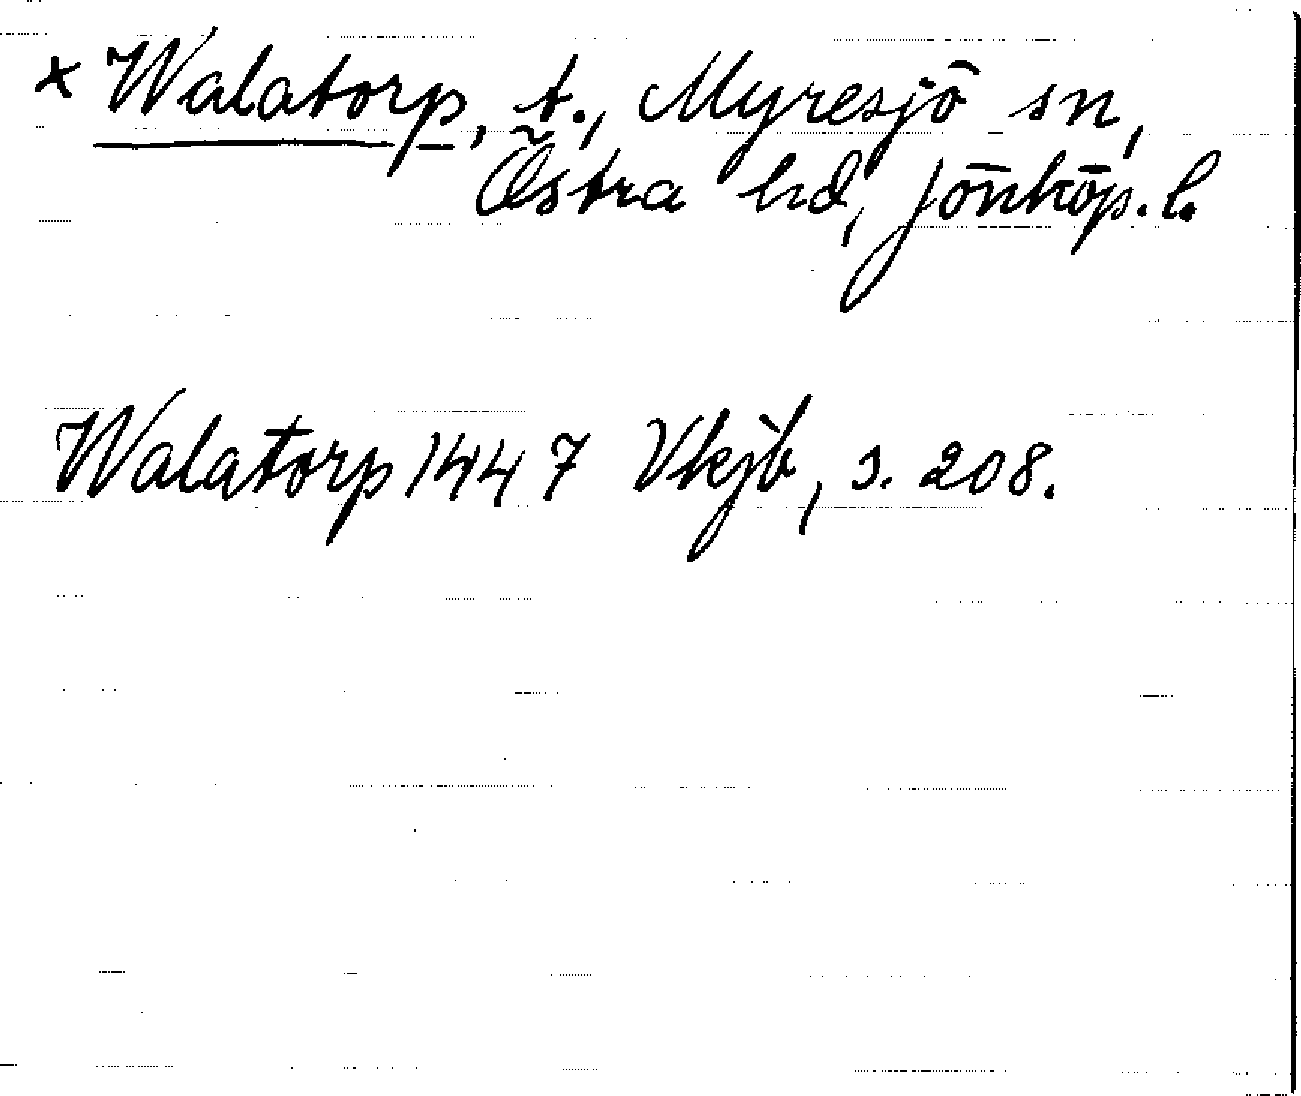 x Walatorp, t., Myresjö sn,
Östra hd, Jönköp. l.
Walatorp 1447 Vkjb, s. 208.